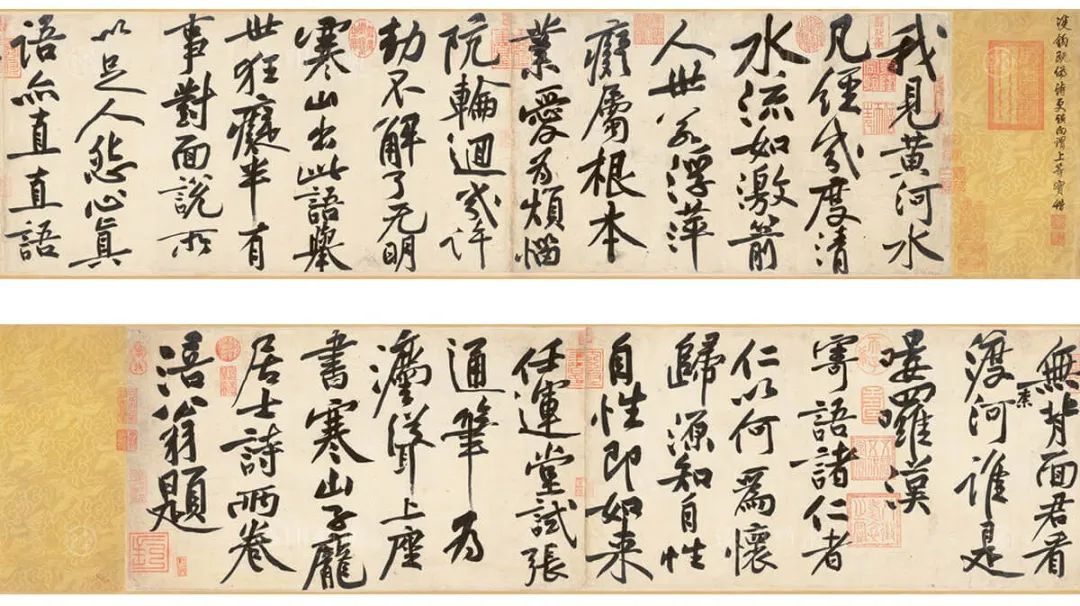 我見黃河水
凡經幾度清
水流如激箭
人世若浮萍
癡屬根本
業愛為煩惱
阬輪迴幾許
劫不解了无明
寒山出此語舉
世狂癡半有
事對面說所
以足人怨心真
語亦直直語
無背面君看
渡河奈誰是
嘍囉漢
寄語諸仁者
仁以何為懷
歸源知自性
自性即如来
任運堂試張
通筆為
灋聳上座
書寒山子龐
居士詩兩卷
涪翁題